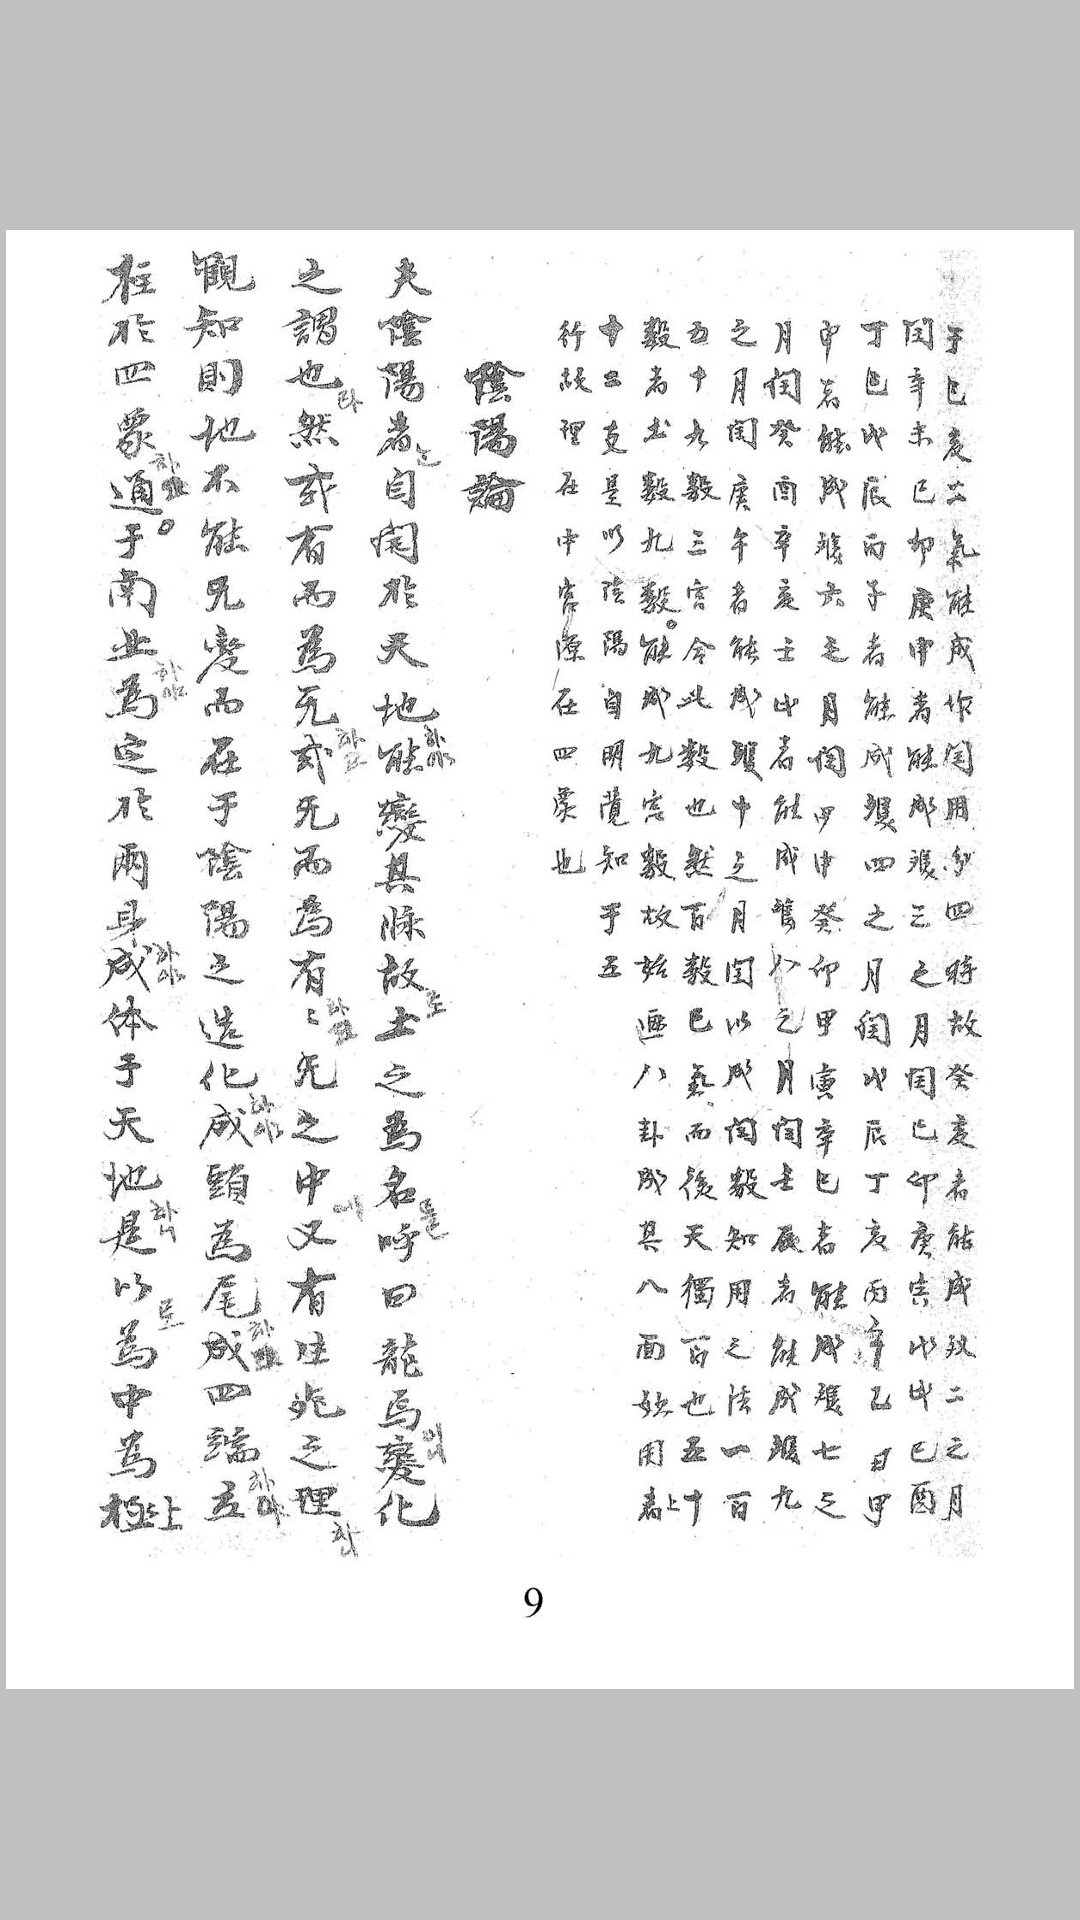 于巳亥二氣能成作閏用分四時故癸亥者能成雙二之月
閏辛未巳卯庚申者能成雙三之月閏巳卯庚寅戊戌巳酉
丁巳戊辰丙子者能成雙四之月閏戊辰丁亥丙辛乙丑甲
申者能成雙六之月閏甲申癸卯甲寅辛巳者能成雙七之
月閏癸酉辛亥壬戌者能成雙八之月閏壬辰者能成雙九
之月閏庚午者能成雙中之月閏以成閏數知用之法一百
五十九數三宮合此數也然百數巳氣而後天獨百也五十
數者玄數九數能成九宮數故始運八卦成其八面妙用者上
十二支是以陰陽自明覺知于五
行故理在中宮源在四象也
陰陽論
夫陰陽者는自開於天地能하야變其脉故로士之爲名을呼曰龍焉이니變化
之謂也라然或有而爲无하고或无而爲有하고〻无之中에又有生死之理하니
觀知則地不能无變而在于陰陽之造化成하야頭爲尾成하고四端立하야
柱於四象하고通于南北하야爲定於兩身하야成体于天地하니是以로爲中爲極上